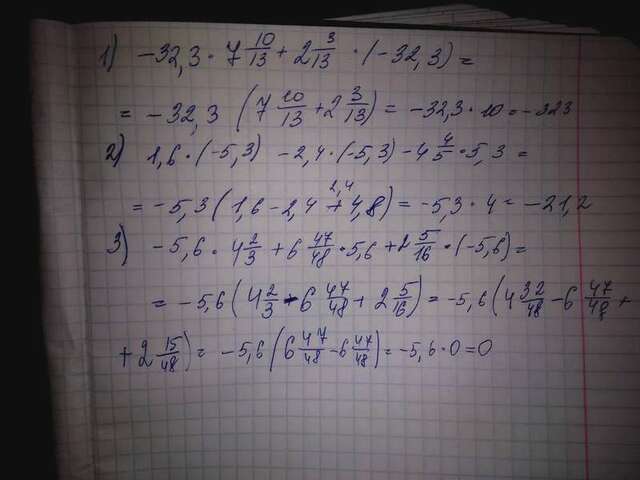 1) -32,3 · 7 10/13 + 2 3/13 · (-32,3) =
= -32,3 (7 10/13 + 2 3/13) = -32,3 · 10 = -323
2) 1,6 · (-5,3) - 2,4 · (-5,3) - 4 4/5 · 5,3 =
2,4
= -5,3 (1,6 - 2,4 + 4,8) = -5,3 · 4 = -21,2
3) -5,6 · 4 2/3 + 6 47/48 · 5,6 + 2 5/16 · (-5,6) =
= -5,6 (4 2/3 - 6 47/48 + 2 5/16) = -5,6 (4 32/48 - 6 47/48 +
+ 2 15/48) = -5,6 (6 47/48 - 6 47/48) = -5,6 · 0 = 0